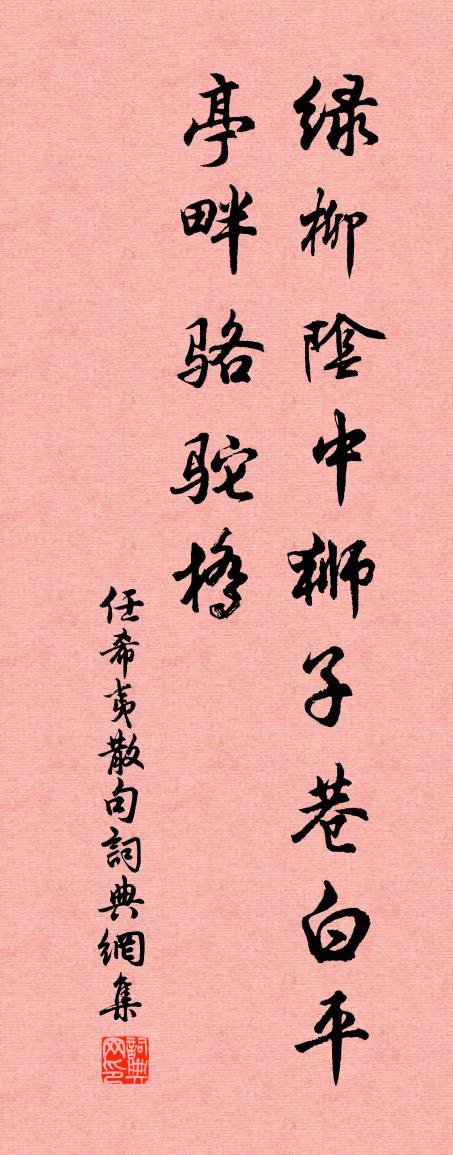 绿柳陰中狮子巷白平
亭畔骆驼橋
任希夷散句詞典網集
詞典网印